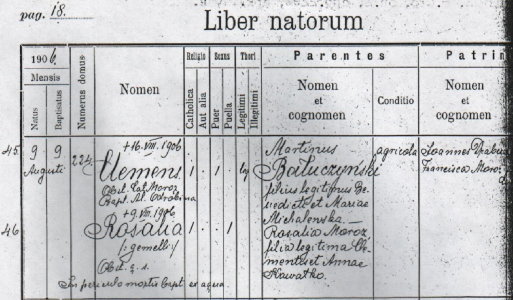 pag. 18.
Liber natorum
1906.
Mensis
Natus
Baptisatus
Numerus domus
Nomen
Religio
Catholica
Aut alia
Sexus
Puer
Puella
Thori
Legitimi
Illegitimi
Parentes
Nomen
et
cognomen
Conditio
Patrin
Nomen
et
cognomen
45
9 9
Augusti
224
+16.VIII.1906
Clemens
Obst. Moroz
Bapt.
1 1
Martinus
Bałuczyński
filius legitimus Be-
nedicti et Mariae
Michalenska. —
agricola
Joannes
Francisca Moroz
46
+9.VIII.1906
Rosalia
/:gemelli:/
1 1
Rosalia Moroz
filia legitima Cle-
mentis et Annae
Kawatko.
Obst. q. s.
In periculo mortis bapt. ex aqua